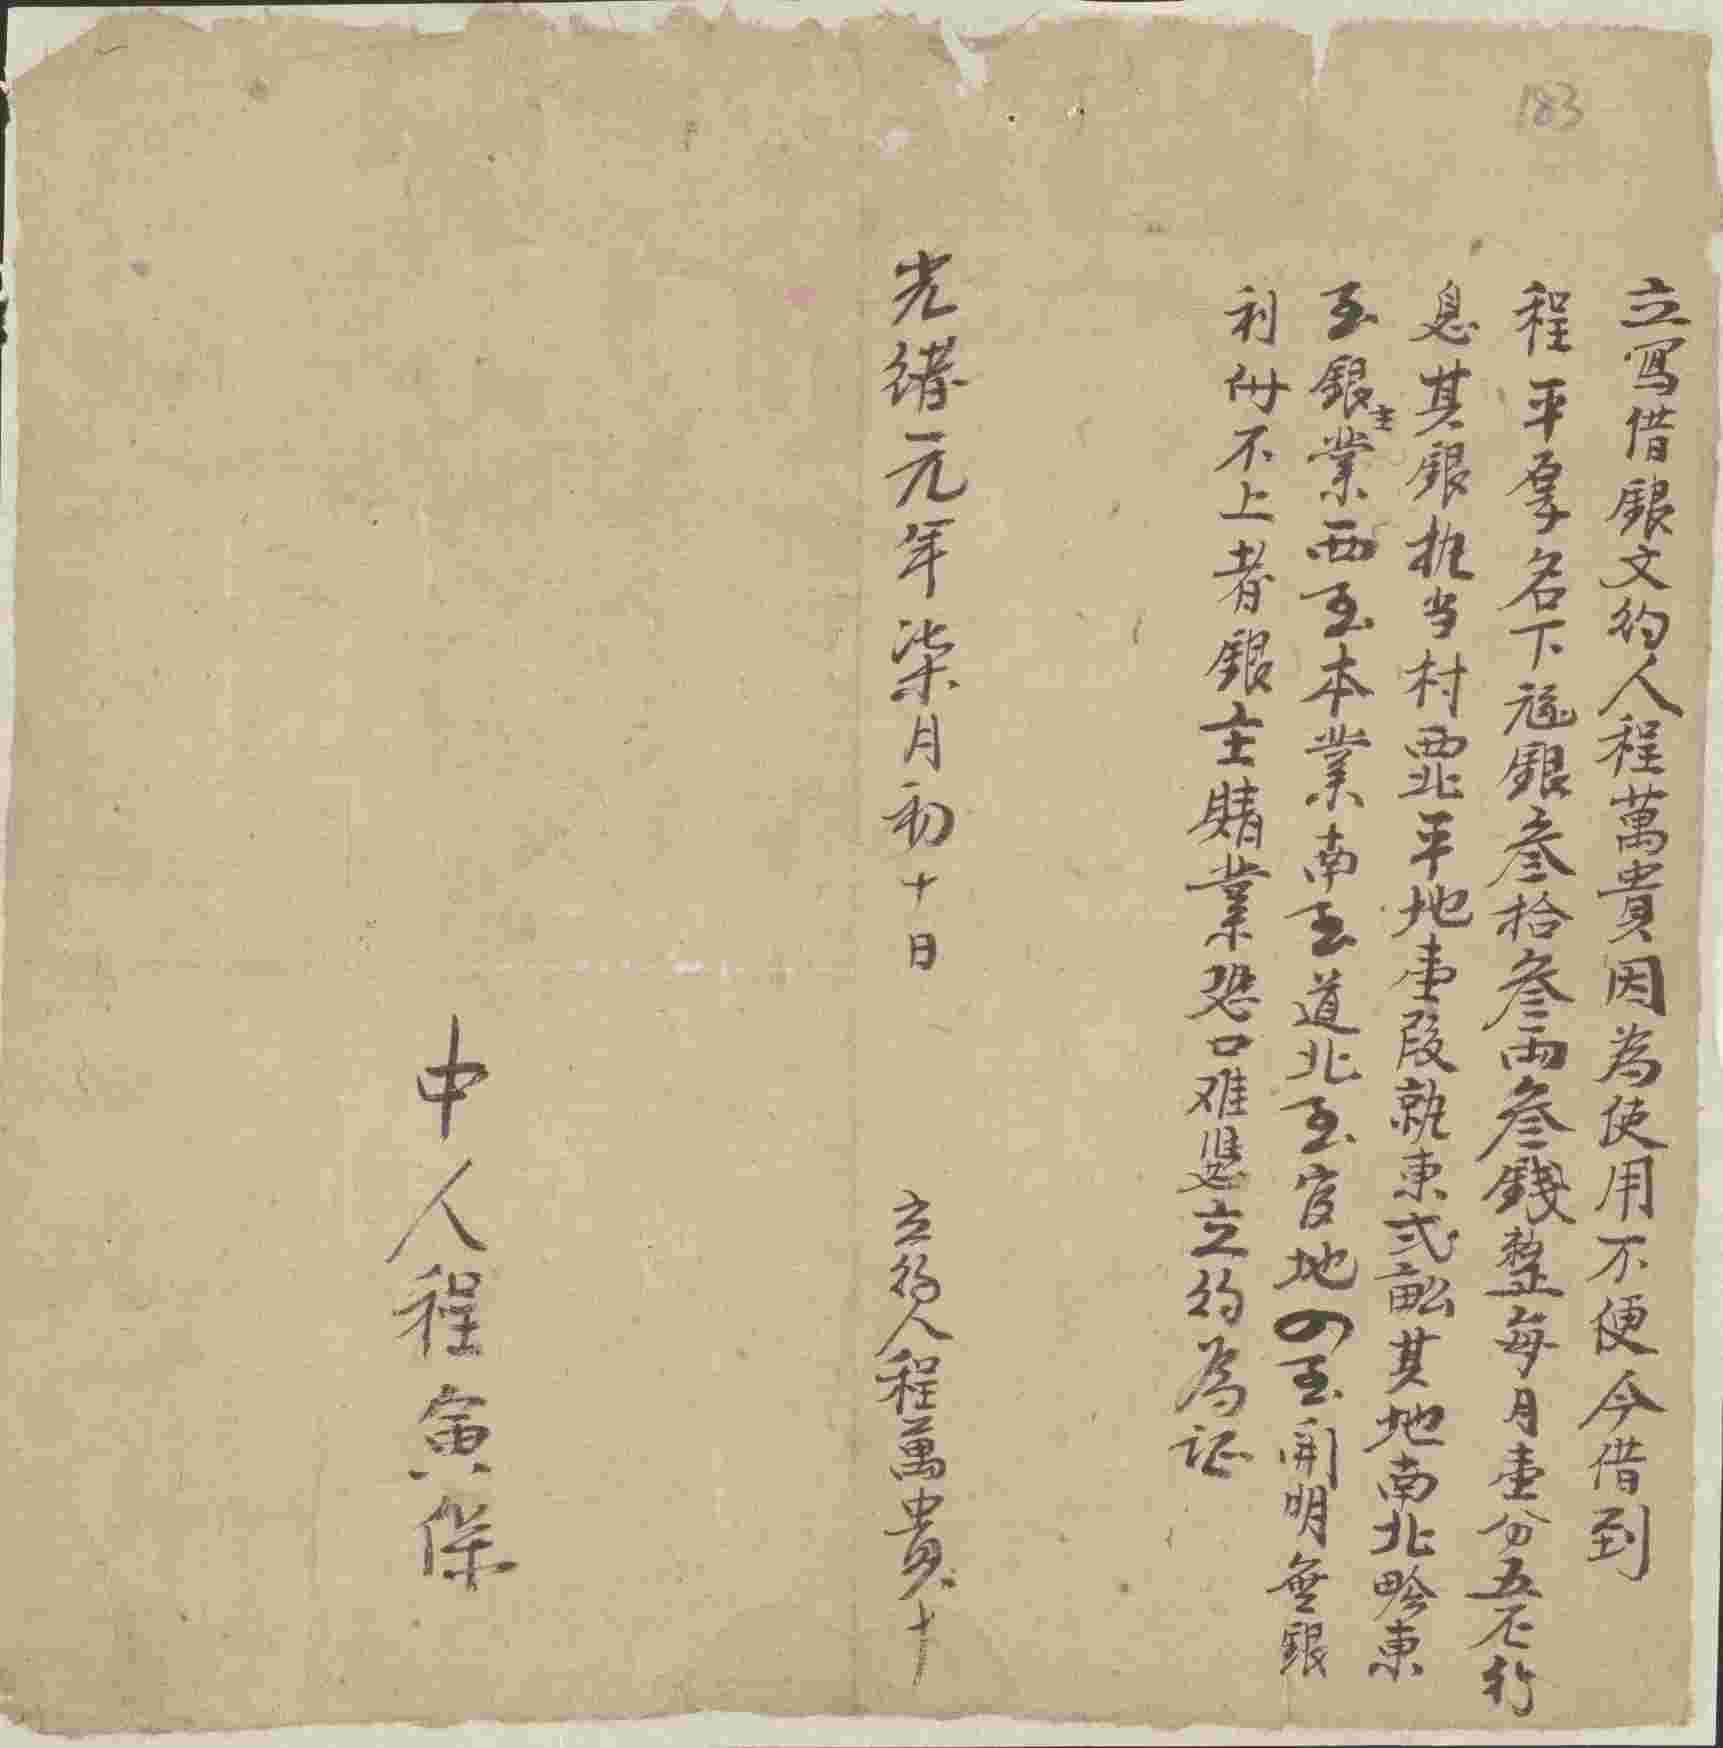 183
立寫借銀文約人程萬貴因為使用不便今借到
程平厚名下元銀叁拾叁兩叁錢整每月壹分五行
息其銀抵当村西北平地壹段就東弍畝其地南北畛東
至銀主業西至本業南至道北至官地四至開明無銀
利付不上者銀主賭業恐口难憑立約為証
光緒元年柒月初十日
立約人程萬貴十
中人程寅保